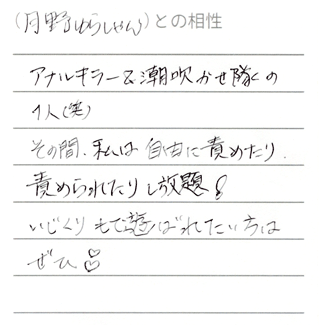 (月野ゆらしゃん)との相性
アナルキラー&潮吹かせ隊の
1人(笑)
その間、私は自由に責めたり、
責められたりし放題!
いじくりもて遊ばれたい方は
ぜひ♡